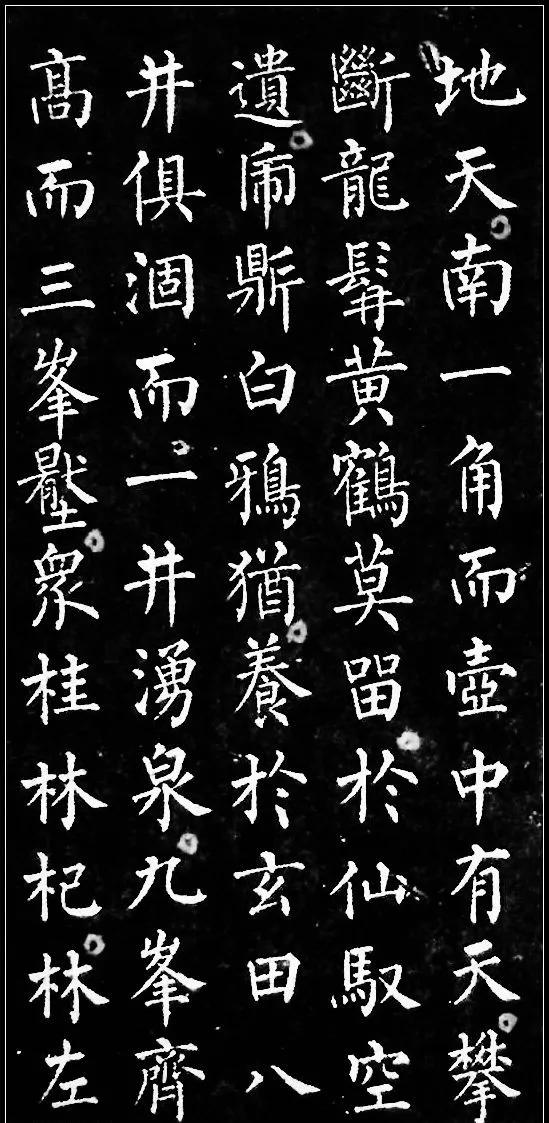 地天南一角而壺中有天攀
斷龍髯黃鶴莫留於仙馭空
遺鼎白鴉猶養於玄田八
井俱涸而一井湧泉九峯齊
高而三峯壓衆桂林杞林左